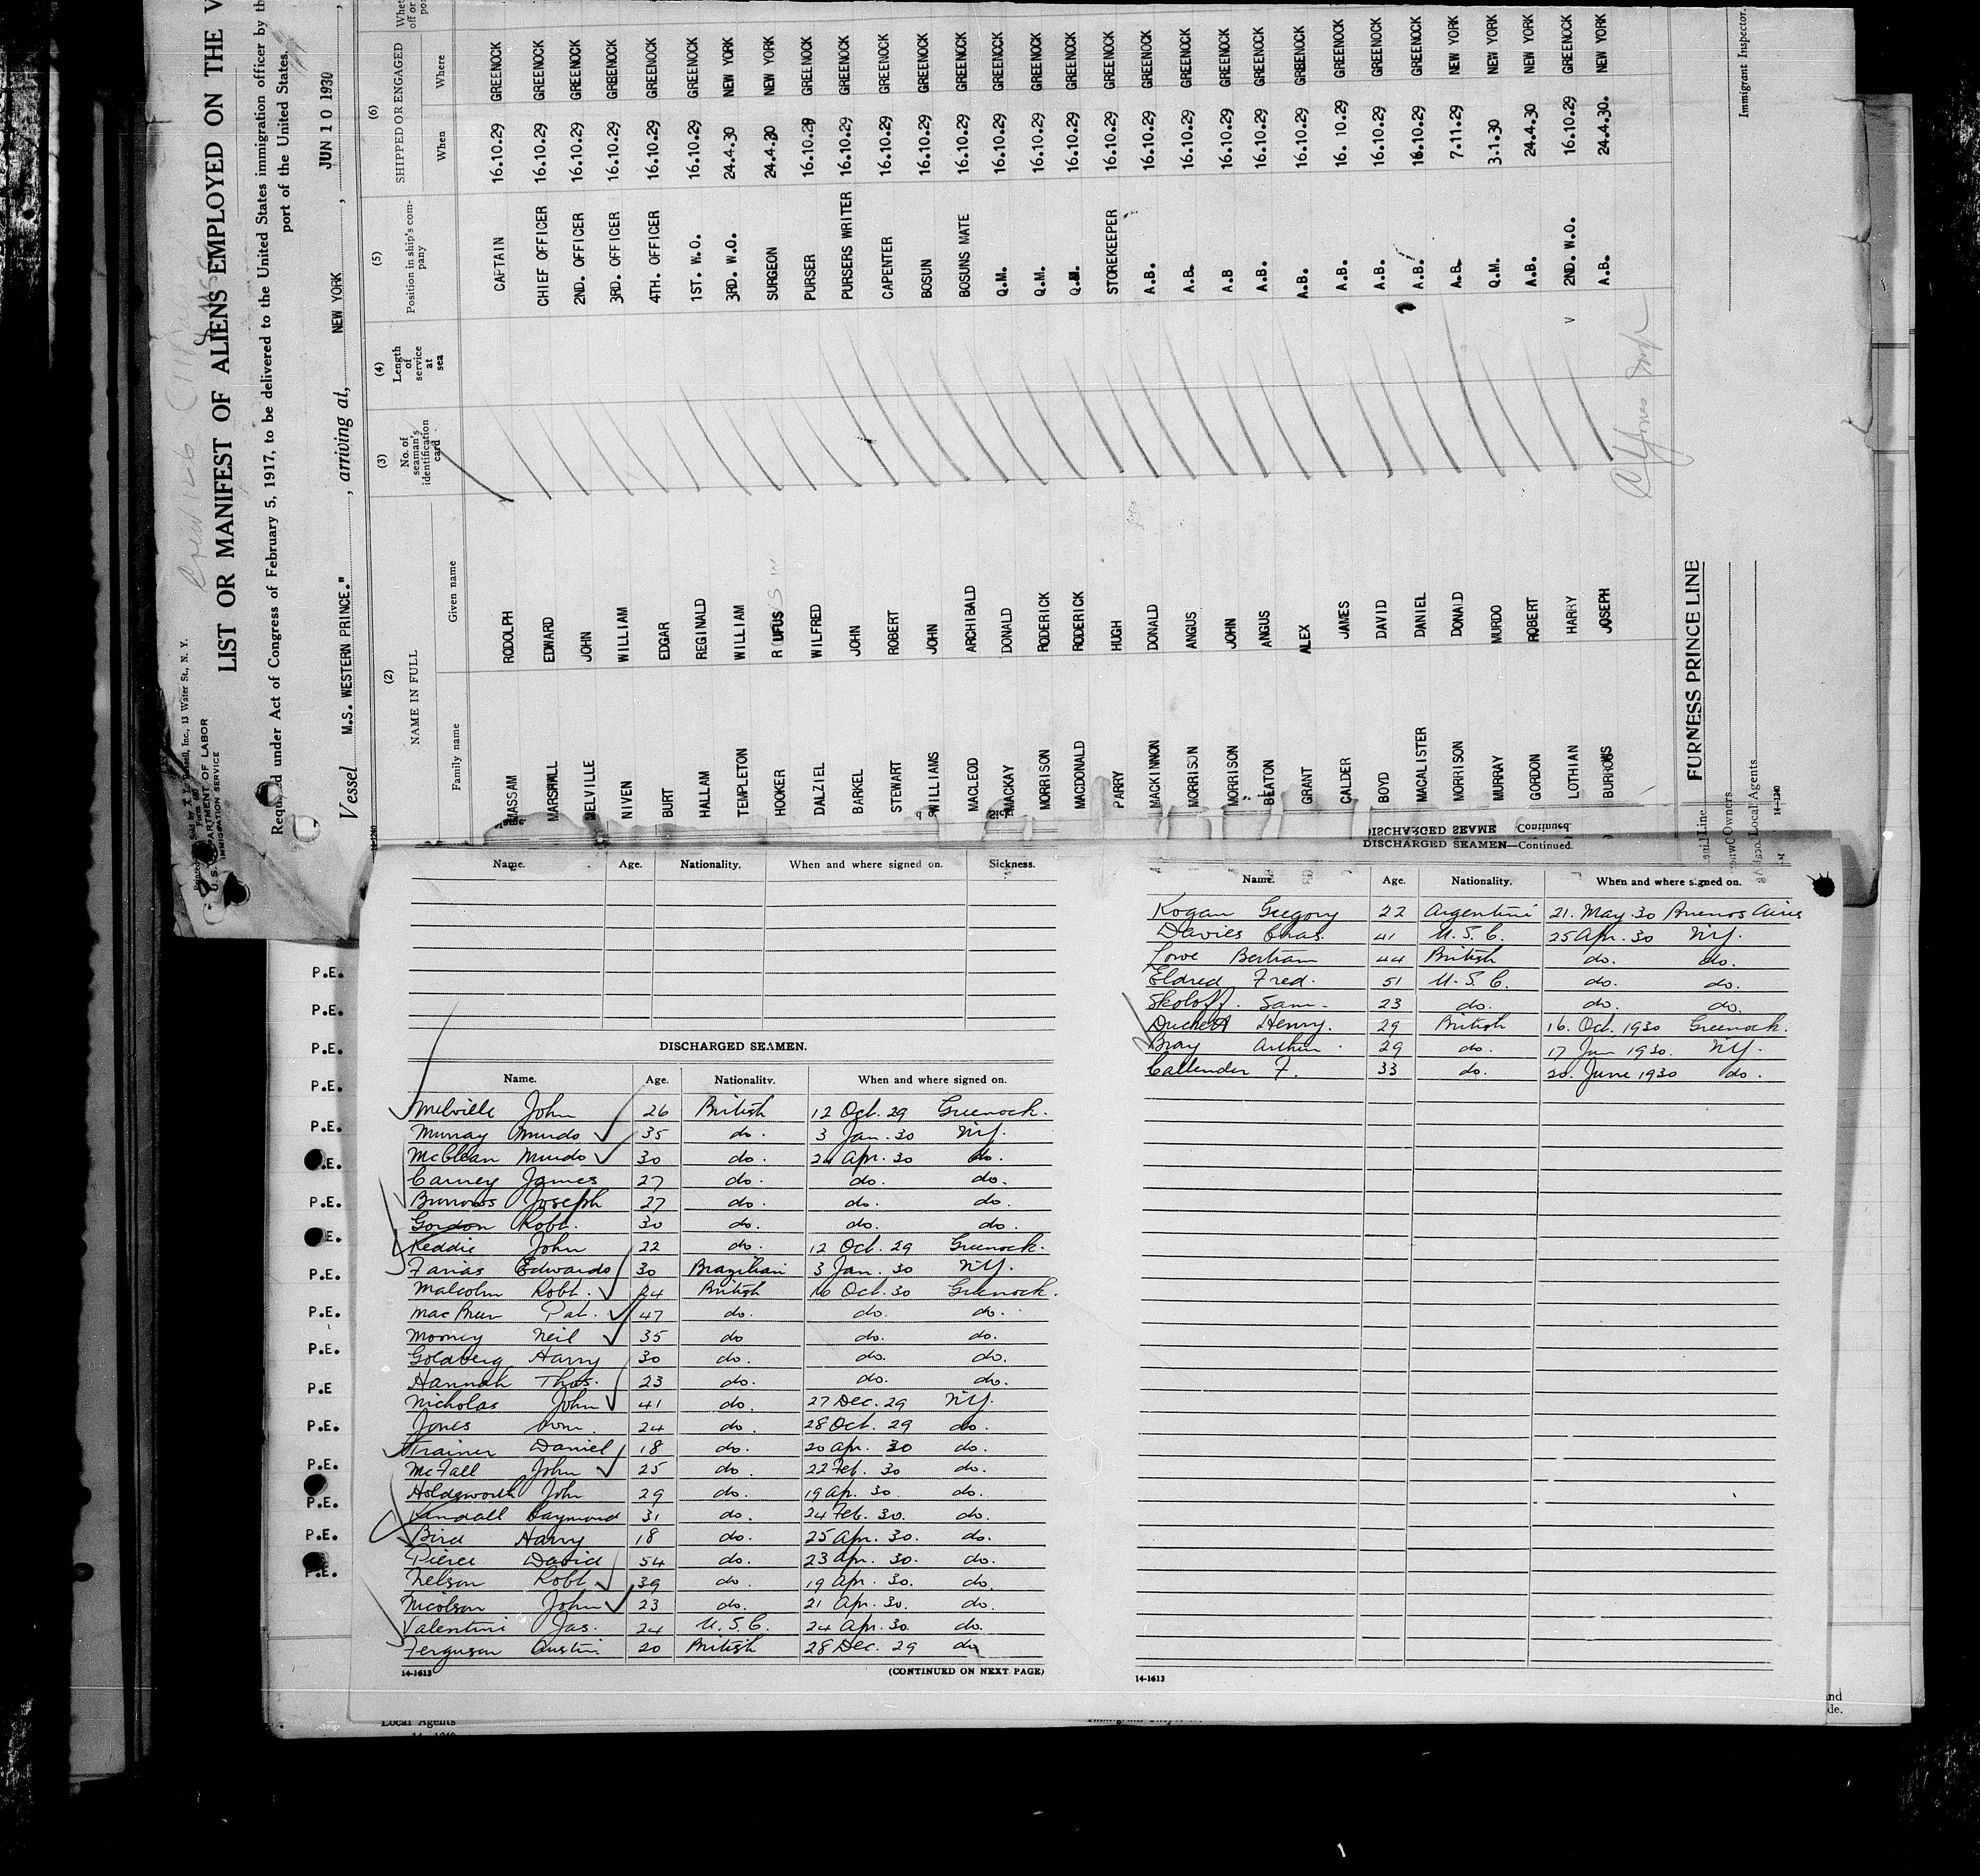 Sold by A. L. Russell, Inc., 13 Water St., N. Y.
Form 680
U.S. DEPARTMENT OF LABOR
IMMIGRATION SERVICE
Crew 126
LIST OR MANIFEST OF ALIENS EMPLOYED ON THE V
Required under Act of Congress of February 5, 1917, to be delivered to the United States immigration officer by th
port of the United States.
Vessel M.S. WESTERN PRINCE." , arriving at, NEW YORK , JUN 10 1930 ,
(2) (3) (4) (5) (6)
NAME IN FULL No. of seaman's identification card Length of service at sea Position in ship's company SHIPPED OR ENGAGED
Family name Given name When Where
MASSAM RODOLPH CAPTAIN 16.10.29 GREENOCK
MARSHALL EDWARD CHIEF OFFICER 16.10.29 GREENOCK
MELVILLE JOHN 2ND. OFFICER 16.10.29 GREENOCK
NIVEN WILLIAM 3RD. OFFICER 16.10.29 GREENOCK
BURT EDGAR 4TH. OFFICER 16.10.29 GREENOCK
HALLAM REGINALD 1ST. W.O. 16.10.29 GREENOCK
TEMPLETON WILLIAM 3RD. W.O. 24.4.30 NEW YORK
HOOKER RUFUS SURGEON 24.4.30 NEW YORK
DALZIEL WILFRED PURSER 16.10.29 GREENOCK
BARKEL JOHN PURSERS WRITER 16.10.29 GREENOCK
STEWART ROBERT CAPENTER 16.10.29 GREENOCK
WILLIAMS JOHN BOSUN 16.10.29 GREENOCK
MACLEOD ARCHIBALD BOSUNS MATE 16.10.29 GREENOCK
MACKAY DONALD Q.M. 16.10.29 GREENOCK
MORRISON RODERICK Q.M. 16.10.29 GREENOCK
MACDONALD RODERICK Q.M. 16.10.29 GREENOCK
PARRY HUGH STOREKEEPER 16.10.29 GREENOCK
MACKINNON DONALD A.B. 16.10.29 GREENOCK
MORRISON ANGUS A.B. 16.10.29 GREENOCK
MORRISON JOHN A.B 16.10.29 GREENOCK
BEATON ANGUS A.B. 16.10.29 GREENOCK
GRANT ALEX A.B. 16.10.29 GREENOCK
CALDER JAMES A.B. 16. 10.29 GREENOCK
BOYD DAVID A.B. 16.10.29 GREENOCK
MACALISTER DANIEL A.B. 16.10.29 GREENOCK
MORRISON DONALD A.B. 7.11.29 NEW YORK
MURRAY MURDO Q.M. 3.1.30 NEW YORK
GORDON ROBERT A.B. 24.4.30 NEW YORK
LOTHIAN HARRY V 2ND. W.O. 16.10.29 GREENOCK
BURROWS JOSEPH A.B. 24.4.30. NEW YORK
FURNESS PRINCE LINE
Line
Owners
Local Agents
Immigrant Inspector.
14-1240
Name. Age. Nationality. When and where signed on. Sickness.
DISCHARGED SEAMEN.
Name. Age. Nationality. When and where signed on.
Melville John 26 British 12 Oct. 29 Greenock.
Murray Murdo 35 do. 3 Jan. 30 N.Y.
McClean Murdo 30 do. 24 Apr. 30 do.
Carney James 27 do. do. do.
Burrows Joseph 27 do. do. do
Gordon Robt. 30 do. do. do.
Keddie John 22 do. 12 Oct. 29 Greenock.
Farias Edwardo 30 Brazilian 3 Jan. 30 N.Y.
Malcolm Robt. 24 British 16 Oct. 30 Greenock.
Pat. 47 do. do. do.
Mooney Neil 35 do do. do.
Goldberg Harry 30 do. do. do.
Hannah Thos. 23 do. do. do.
Nicholas John 41 do. 27 Dec. 29 N.Y.
Jones Wm. 24 do. 28 Oct. 29 do.
Trainer Daniel 18 do. 20 Apr. 30 do.
McFall John 25 do. 22 Feb. 30 do.
Holdsworth John 29 do. 19 Ap. 30. do.
Kendall Raymond 31 do. 24 Feb. 30. do.
Bird Harry 18 do. 25 Apr. 30. do.
Pierce David 54 do. 23 Apr. 30. do.
Nelson Robt. 39 do. 19 Apr. 30. do.
Nicolson John 23 do. 21 Apr. 30. do.
Valentini Jas. 24 U.S.C. 24 Apr. 30. do.
Ferguson Austin 20 British 28 Dec. 29 do
14-1613 (CONTINUED ON NEXT PAGE)
DISCHARGED SEAMEN—Continued.
Name. Age. Nationality. When and where signed on.
Kogan Gregory 22 Argentini 21. May. 30 Buenos Aires
Davies Chas. 41 U.S.C. 25 Apr. 30 N.Y.
Lowe Bertram 44 British do. do.
Eldred Fred. 51 U.S.C. do. do.
Skoloff. Sam. 23 do. do. do.
Duckett Henry. 29 British 16. Oct. 1930 Greenock.
Bray Arthur. 29 do. 17 Jan 1930. N.Y.
Callender F. 33 do. 20. June 1930 do.
14-1613
P.E.
P.E.
P.E.
P.E.
P.E.
.E.
P.E.
E.
P.E.
P.E.
P.E.
P.E
P.E.
P.E.
P.E.
P.E.
P.E.
Local Agents
nd
de.